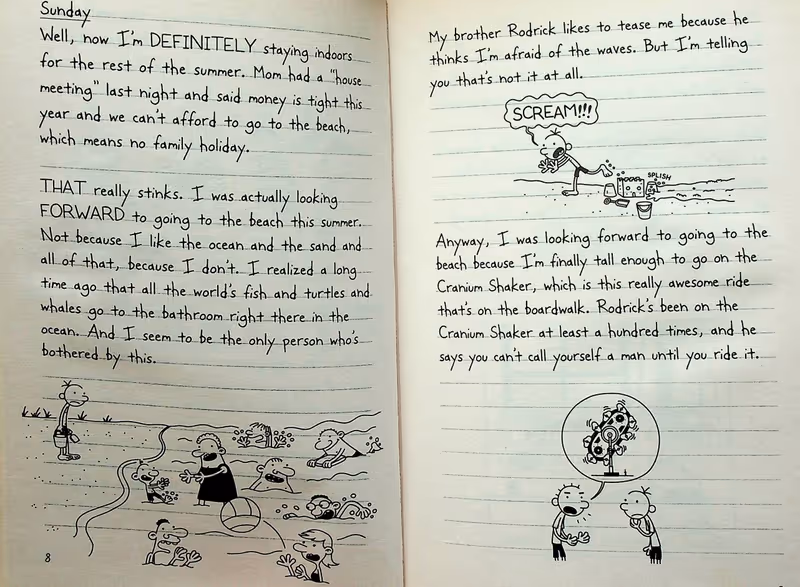 Sunday
Well, now I'm DEFINITELY staying indoors
for the rest of the summer. Mom had a "house
meeting" last night and said money is tight this
year and we can't afford to go to the beach,
which means no family holiday.
THAT really stinks. I was actually looking
FORWARD to going to the beach this summer.
Not because I like the ocean and the sand and
all of that, because I don't. I realized a long
time ago that all the world's fish and turtles and
whales go to the bathroom right there in the
ocean. And I seem to be the only person who's
bothered by this.
8
My brother Rodrick likes to tease me because he
thinks I'm afraid of the waves. But I'm telling
you that's not it at all.
SCREAM!!!
SPLISH
Anyway, I was looking forward to going to the
beach because I'm finally tall enough to go on the
Cranium Shaker, which is this really awesome ride
that's on the boardwalk. Rodrick's been on the
Cranium Shaker at least a hundred times, and he
says you can't call yourself a man until you ride it.